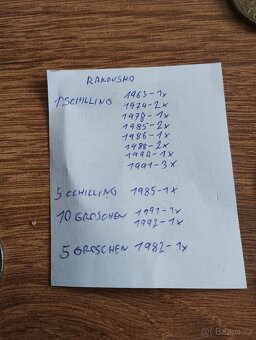 RAKOUSKO
1 SCHILLING 1963-1x
1974-2x
1978-1x
1985-2x
1986-1x
1988-2x
1990-1x
1991-3x
5 SCHILLING 1985-1x
10 GROSCHEN 1991-1x
1992-1x
5 GROSCHEN 1982-1x
© Sbazar.cz